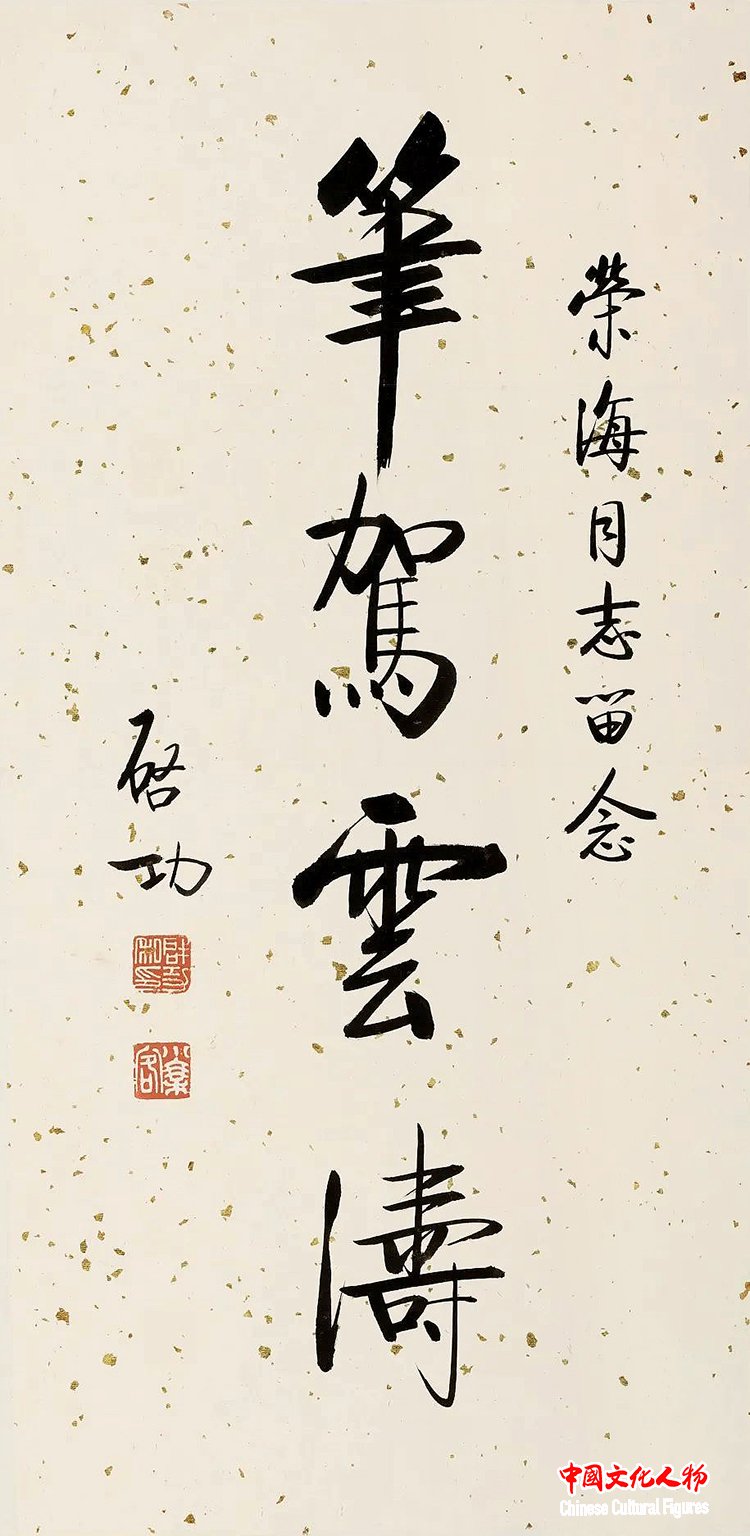 榮海同志留念
筆駕雲濤
啓功
中國文化人物
Chinese Cultural Figures